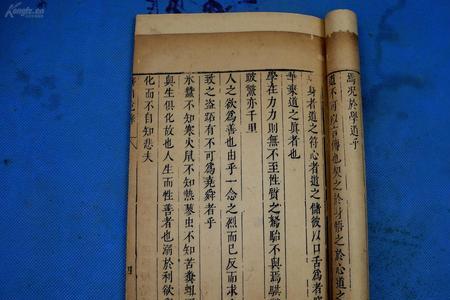 Kongfz.cn
焉况於學道乎
道不可以言傳也契之於身悟之於心道之
身者道之符心者道之儲彼以口舌為者
華棄道之眞者也
學在力力則無不至性質之駑駘不與焉
跛鱉亦千里
人之欲爲善也由乎一念之烈而已反而求
致之盜跖有不可爲堯舜者乎
氷蠶不知寒火鼠不知熱蓼虫不知苦
與生俱化故也人生而性善者也溺於利欲
化而不自知悲夫
四